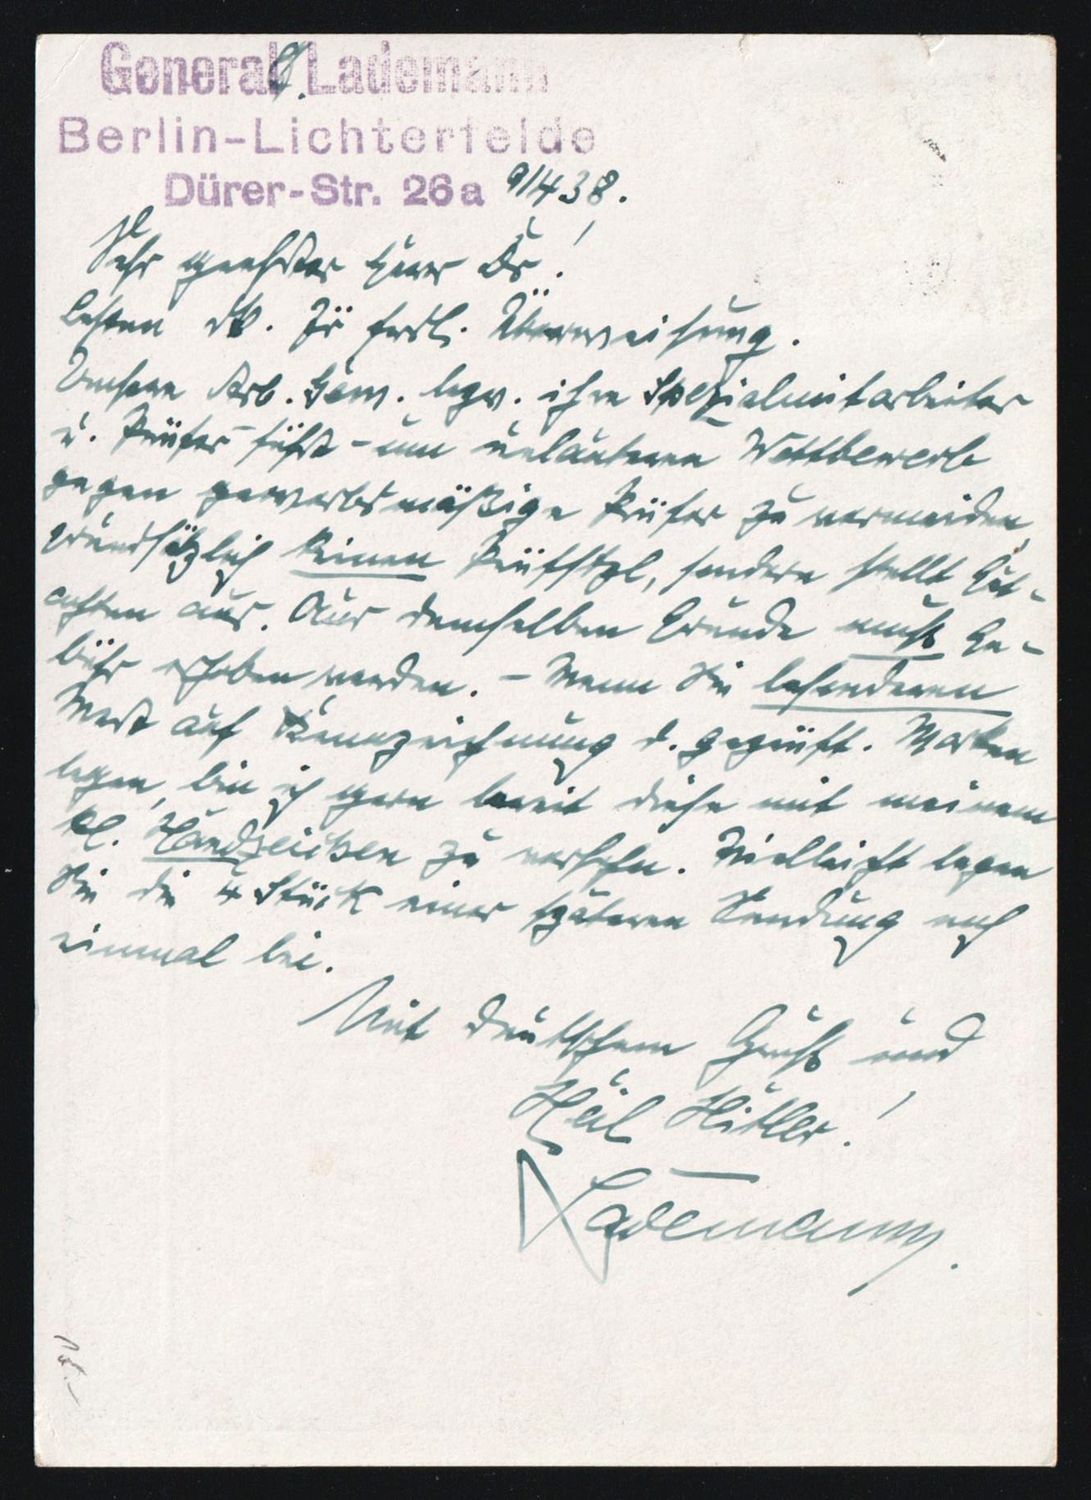 General Lademann
Berlin-Lichterfelde
Dürer-Str. 26a 9/4 38.
Sehr geehrter Herr Dr.!
Besten Dk. für frdl. Überweisung.
Unsere Arb. Gem. bezw. ihre Spezialmitarbeiter
u. Prüfer führt - um unlauteren Wettbewerb
gegen gewerbsmäßige Prüfer zu vermeiden,
grundsätzlich keinen Prüfstpl, sondern stellt Gut-
achten aus. Aus demselben Grunde muß Ge-
bühr erhoben werden. - Wenn Sie besonderen
Wert auf Kennzeichnung d. geprüft. Marken
legen, bin ich gern bereit diese mit meinem
kl. Handzeichen zu versehn. Vielleicht legen
Sie die 4 Stück einer späteren Sendung noch
einmal bei.
Mit deutschem Gruß und
Heil Hitler!
Lademann.